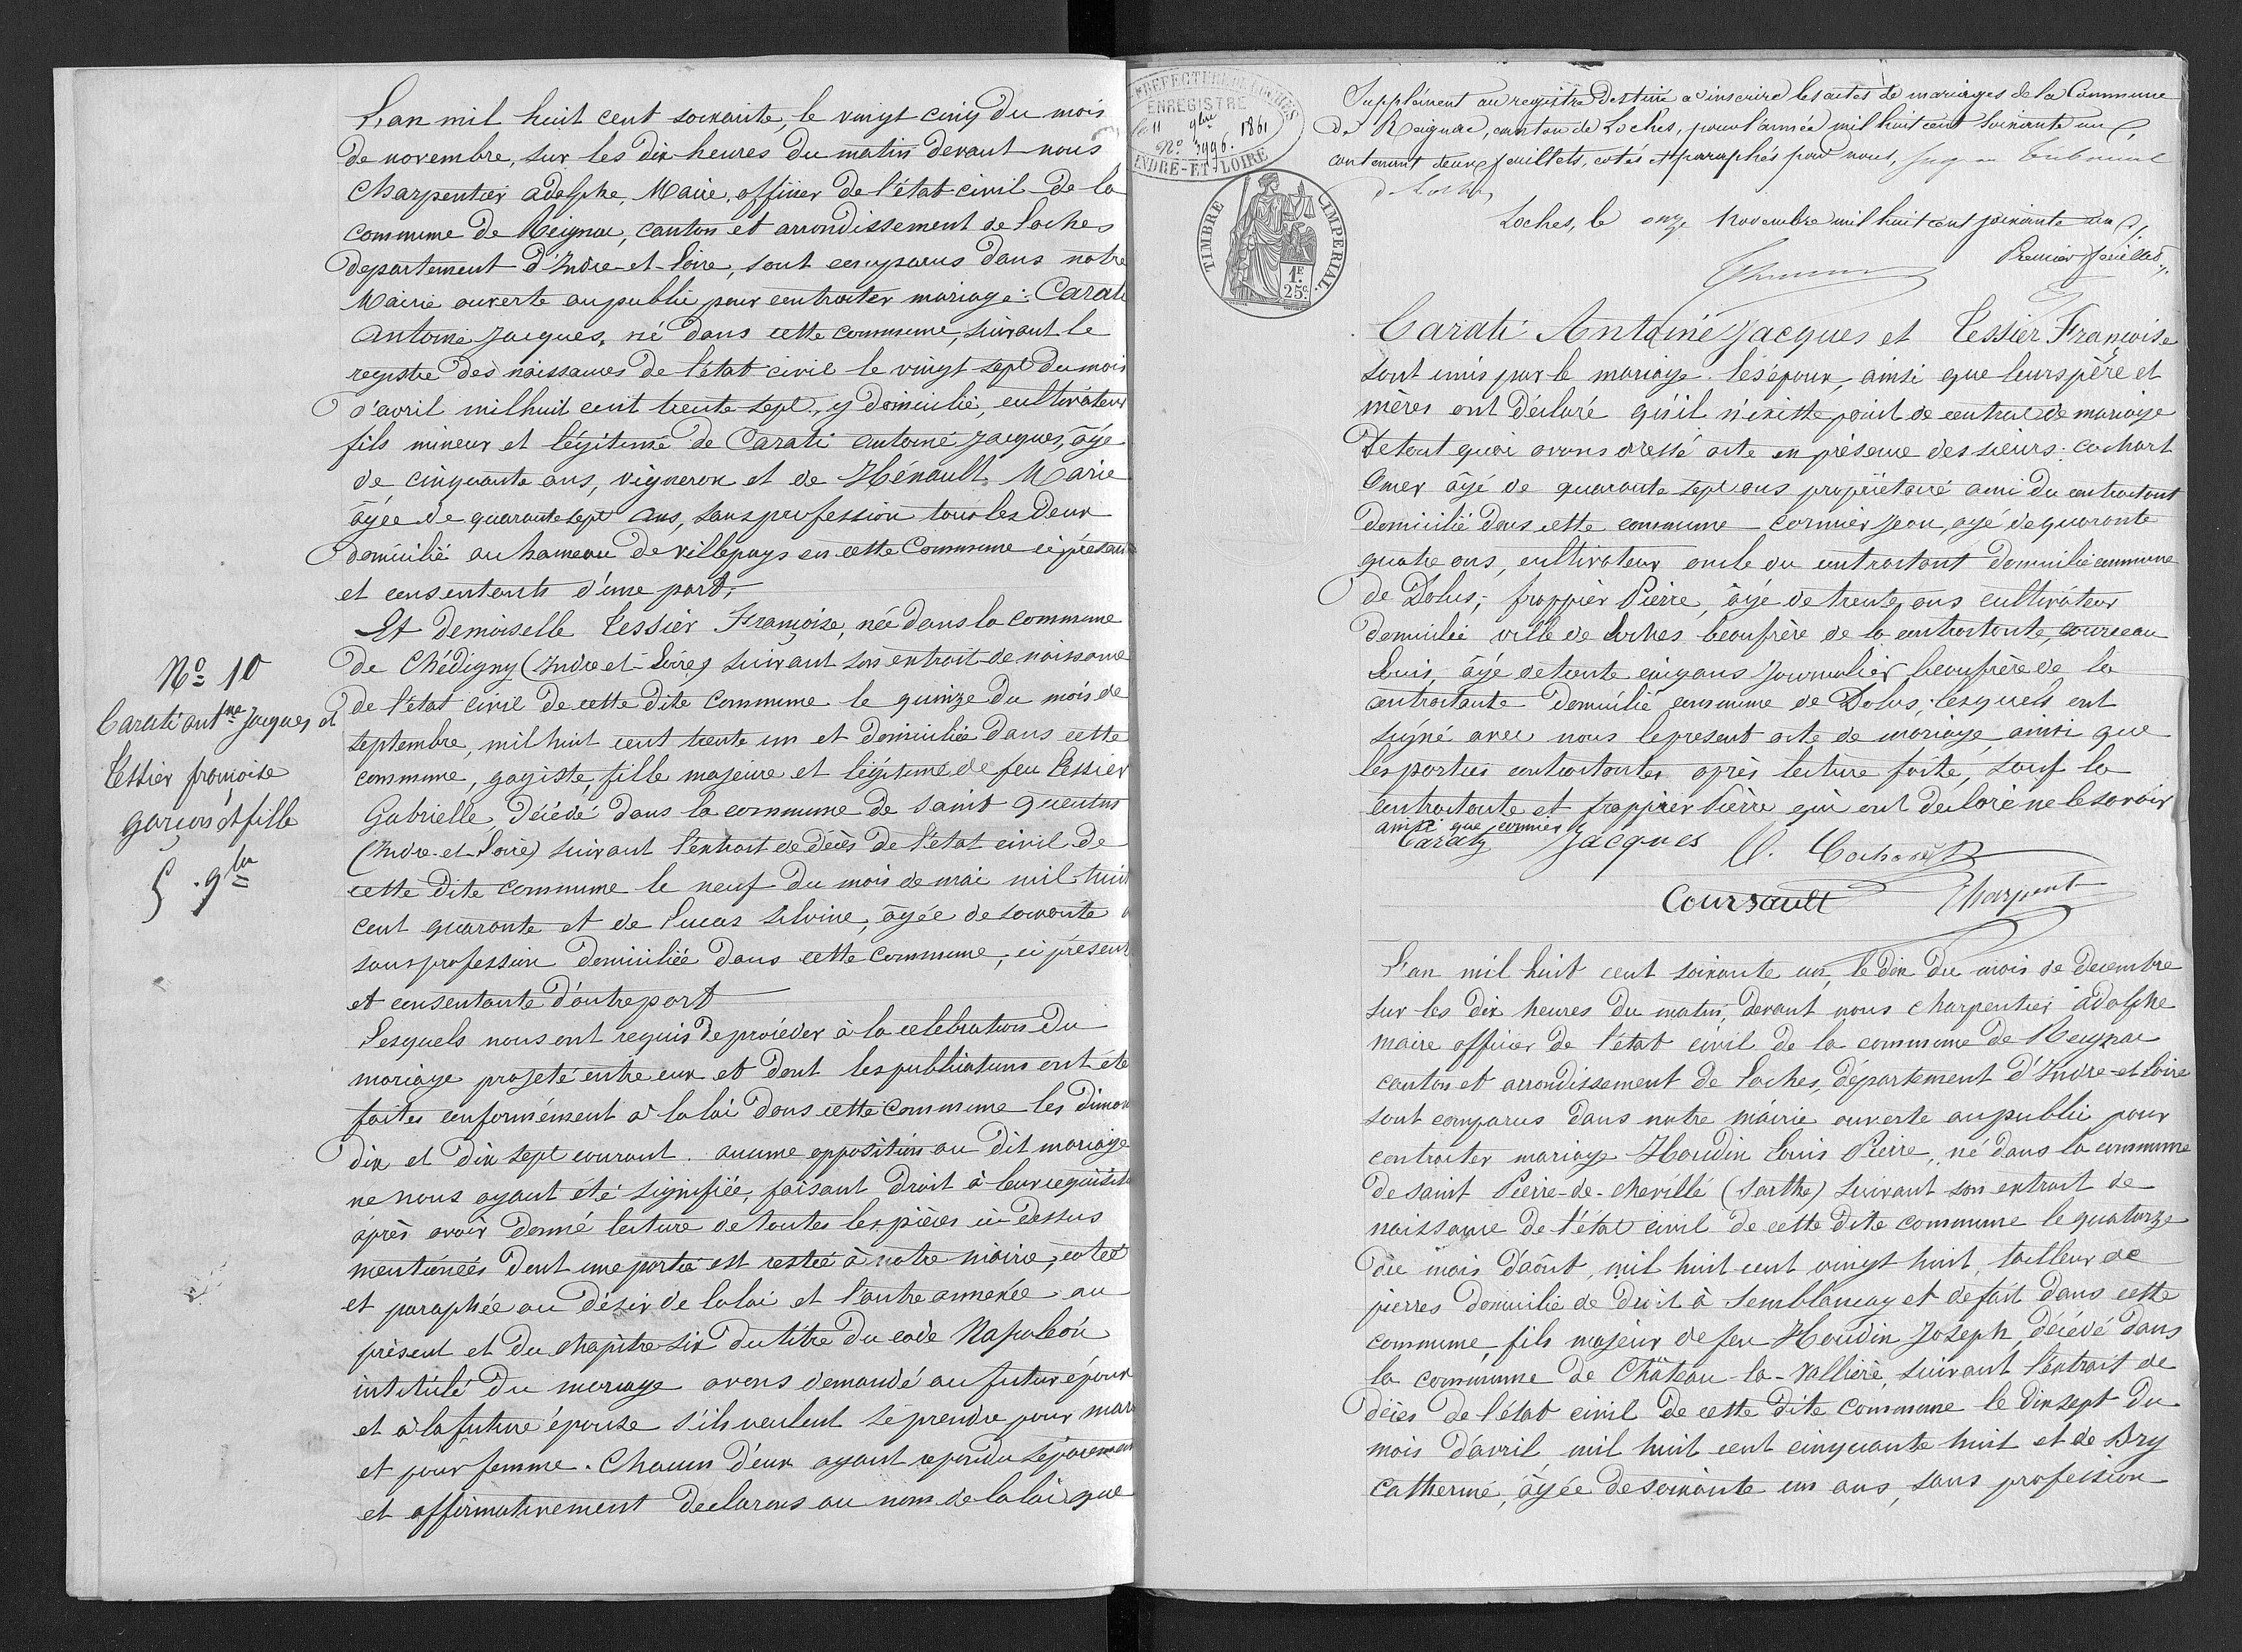 L'an mil huit cent soixante, le vingt cinq du mois
de novembre, sur les dix heures du matin devant nous
Charpentier adolphe, Maire, officier de l'état civil de la
commune de Reignac, canton et arrondissement de Loches
departement d'Indre-et-Loire, sont comparus dans notre
Mairie ouverte au public pour contracter mariage: Carati
Antoine Jacques, né dans cette commune, suivant le
registre des naissances de l'état civil le vingt sept du mois
d'avril mil huit cent trente sept, y domicilié, cultivateur
fils mineur et légitime de Carati antoine Jacques, âgé
de cinquante ans, vigneron et de Hénault Marie
âgée de quarante sept ans, sans profession tous les deux
domicilié au hameau de villepays en cette Commune ci présents
et consentants d'une part;
Et demoiselle Tessier Françoise, née dans la commune
de Chédigny (Indre et-Loire) suivant son extrait de naissance
de l'état civil de cette dite commune le quinze du mois de
septembre, mil huit cent trente un et domiciliée dans cette
commune, gagiste, fille majeure et légitime de feu Tessier
Gabrielle, décédé dans la commune de saint quentin
(Indre-et-Loire) suivant l'extrait de décès de l'état civil de
cette dite commune le neuf du mois de mai mil huit
cent quarante et de Lucas silvine, âgée de soixante
sans profession domiciliée dans cette commune, ci présente
et consentante d'autre part
Lesquels nous ont requis de procéder à la celebration du
mariage projeté entre eux et dont les publications ont été
faites conformément à la loi dans cette commune les dimanches
dix et dix sept courant. aucune opposition au dit mariage
ne nous ayant été signifiée, faisant droit à leur requisition
après avoir donné lecture de toutes les pièces ci-dessus
mentionées dont une partie est restée à notre mairie, cotée
et paraphée au désir de la loi et l'autre annexée au
présent et du chapitre six du titre du code Napoléon
intitulé du mariage avons demandé au futur époux
et à la future épouse s'ils veulent se prendre pour mari
et pour femme. Chacun d'eux ayant repondu séparement
et affirmativement declarons au nom de la loi que
No 10
Carati antne Jacques et
Tessier françoise
garçon et fille
§. 9bre
PREFECTURE DE LOCHES
ENREGISTRE
le 11 9bre 1861
No. 3996.
INDRE-ET-LOIRE
TIMBRE IMPERIAL
1F.
25c.
Supplément au registre destiné à inscrire les actes de mariages de la Commune
de Reignac, canton de Loches, pour l'année mil huit cent soixante un
contenant deux feuillets, cotés et paraphés par nous, Juge au Tribunal
de Loches
Loches, le onze Novembre mil huit cent soixante un
Premier feuillet
Carati Antoine Jacques et Tessier Françoise
sont unis par le mariage. les époux, ainsi que leurs père et
mères ont déclaré qu'il n'existe point de contrat de mariage
De tout quoi avons dressé acte en présence des sieurs: Cochart
Omer âgé de quarante sept ans propriétaire ami du contractant
domicilié dans cette commune - Cormier Jean, agé de quarante
quatre ans, cultivateur oncle du contractant domicilié commune
de Dolus; frappier Pierre, âgé de trente ans cultivateur
domicilié ville de Loches beaufrère de la contractante, courseau
Louis, âgé de trente cinq ans journalier beaufrère de la
contractante domicilié commune de Dolus; lesquels ont
signé avec nous le present acte de mariage ainsi que
les parties contractantes après lecture faite, sauf la
contractante et frappier Pierre qui ont declaré ne le savoir
ainsi que cormier
Caraty Jacques O. Cochart
Coursault Charpent
L'an mil huit cent soixante un, le dix du mois de decembre
sur les dix heures du matin, devant nous charpentier adolphe
maire officier de l'état civil de la commune de Reignac
canton et arrondissement de Loches, département d'Indre-et-Loire
sont comparus dans notre mairie ouverte au public pour
contracter mariage Houdin Louis Pierre, né dans la commune
de saint Pierre-de-chevillé (Sarthe) suivant son extrait de
naissance de l'état civil de cette dite commune le quatorze
du mois d'août, mil huit cent vingt huit, tailleur de
pierres domicilié de droit à Semblancay et de fait dans cette
commune, fils majeur de feu Houdin Joseph, décédé dans
la commune de Château-la-Vallière, suivant l'extrait de
décès de l'état civil de cette dite commune le dix sept du
mois d'avril mil huit cent cinquante huit et de Bry
Catherine, âgée de soixante un ans, sans profession